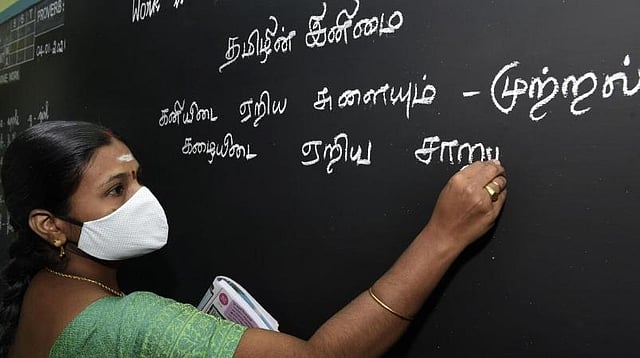 WORK
PROVERB:
04-01-2021
WORK
தமிழின் இனிமை
கனியிடை ஏறிய சுளையும் - முற்றல்
கழையிடை ஏறிய சாறு